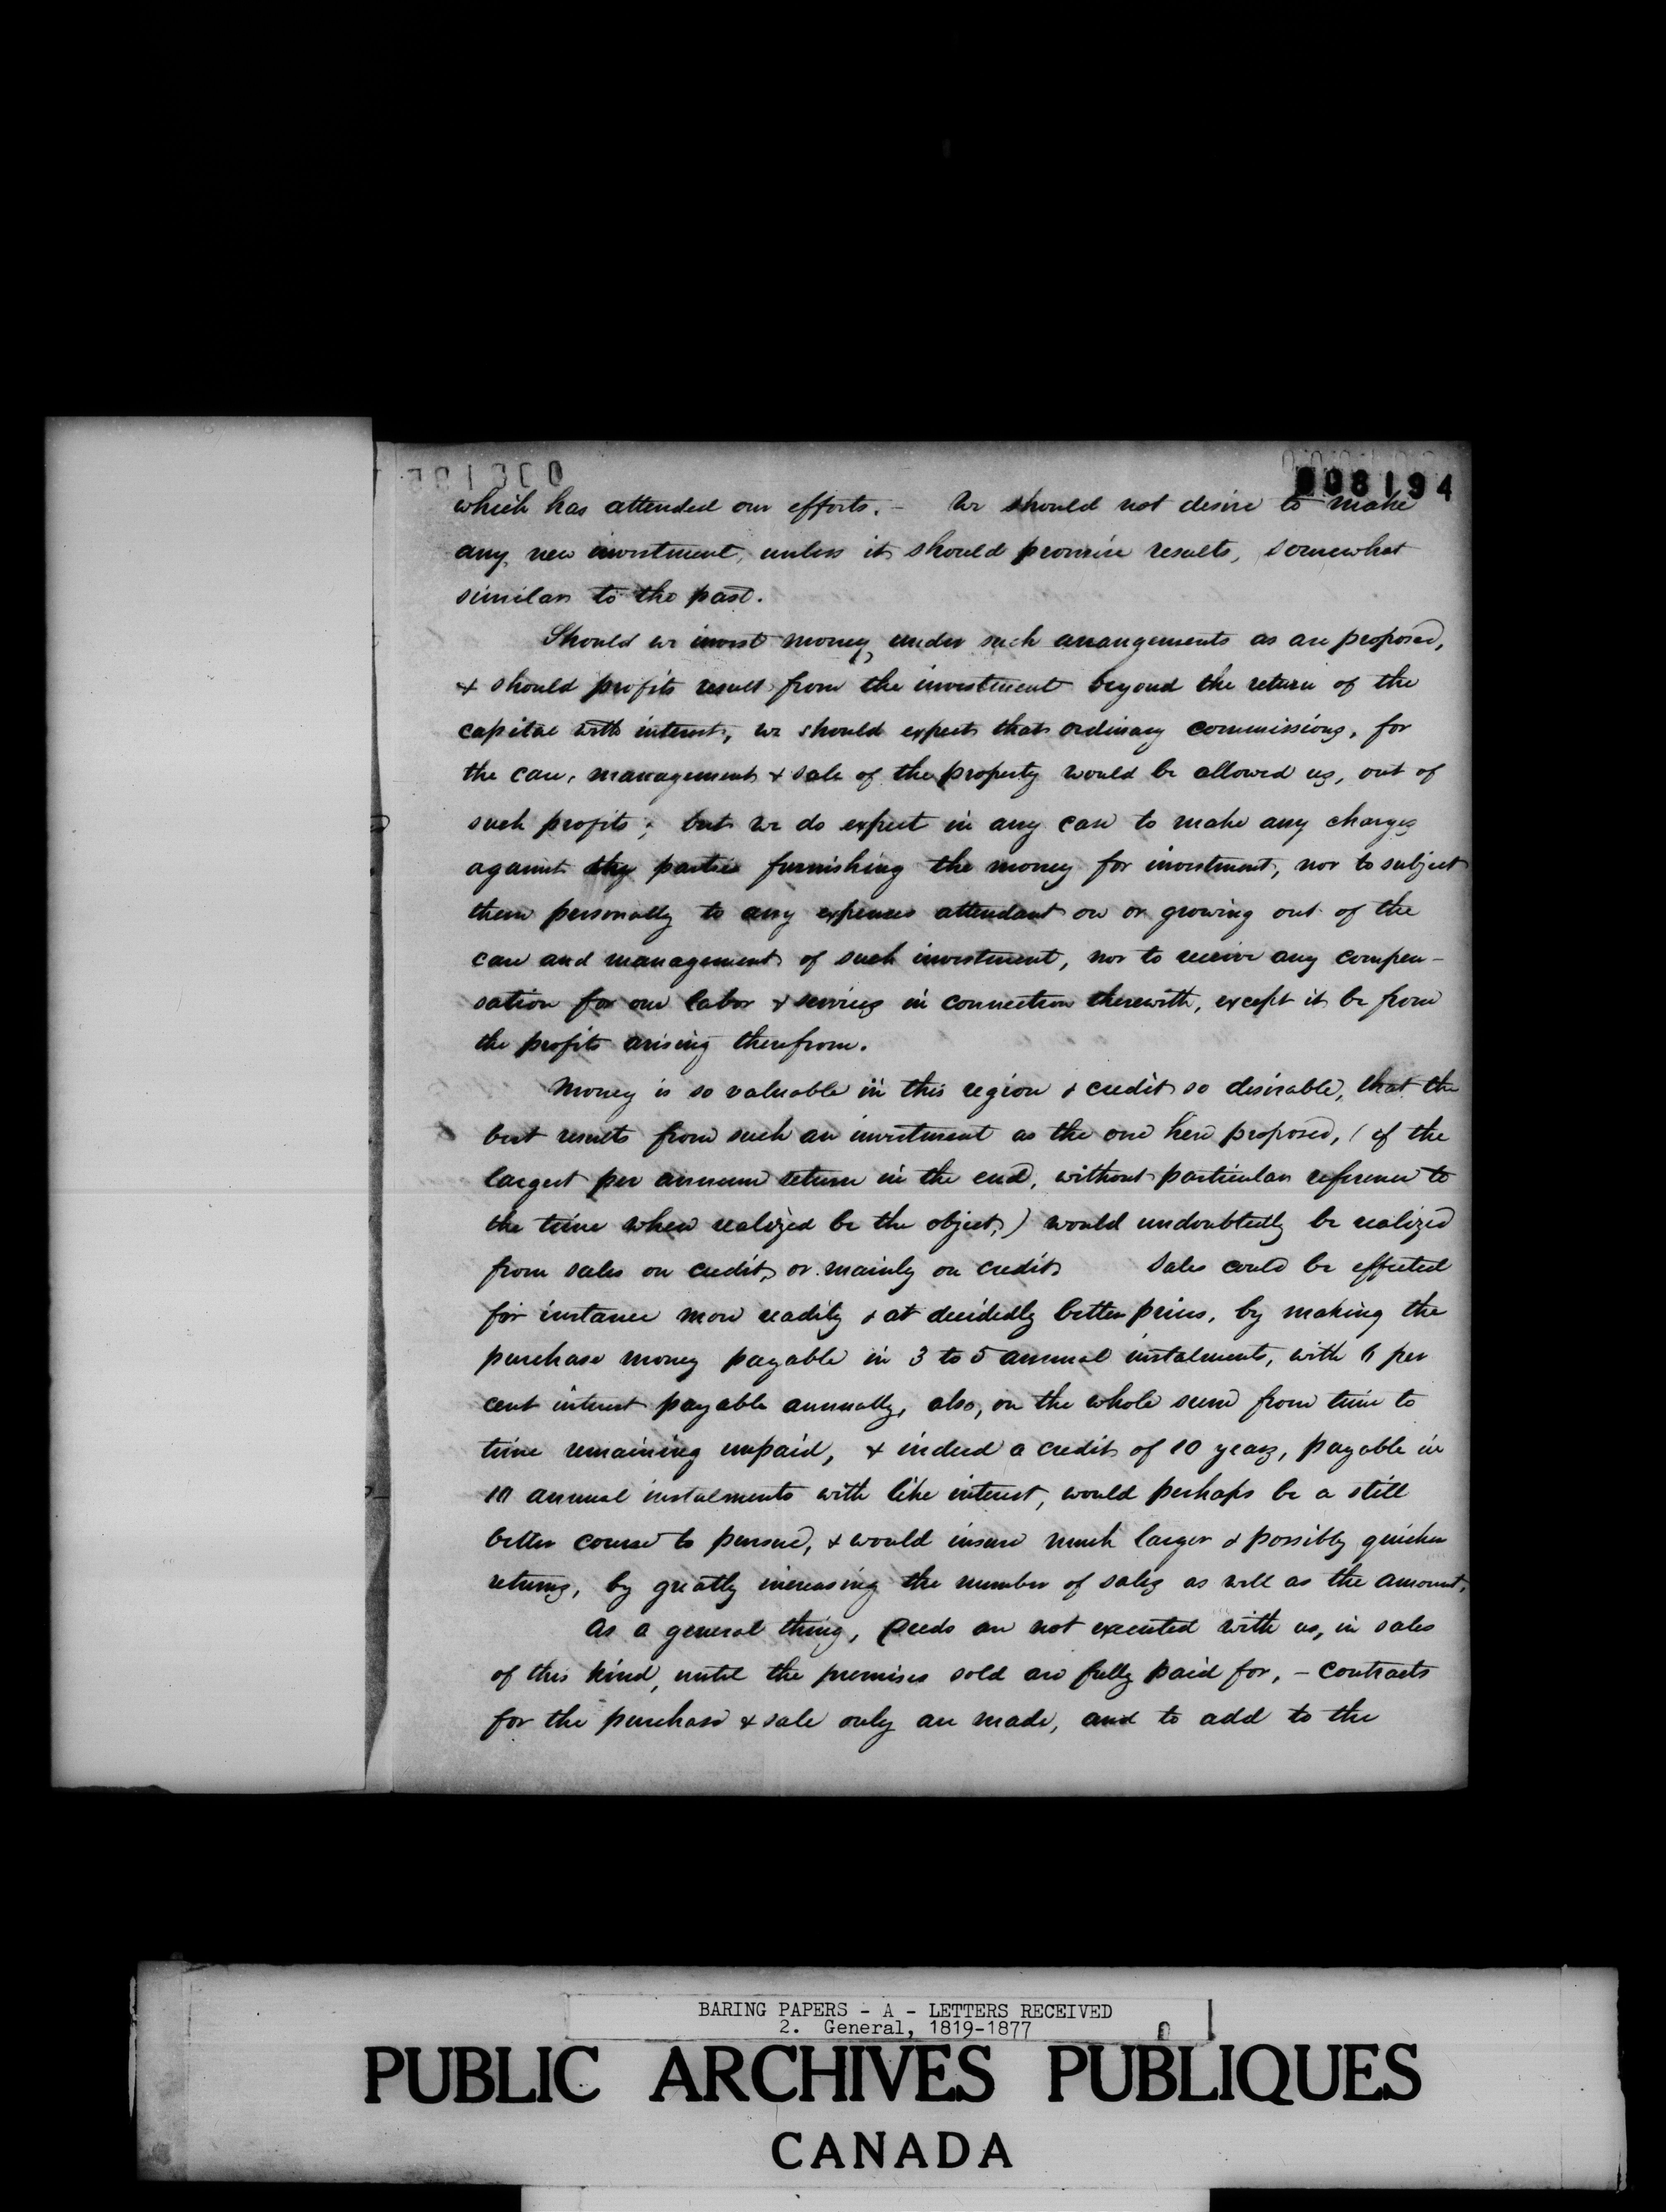 008194
which has attended our efforts. - We should not desire to make
any new investment, unless it should promise results, somewhat
similar to the past.
Should we invest money, under such arrangements as are proposed,
& should profits result from the investment beyond the return of the
capital with interest, we should expect that ordinary commissions, for
the care, management & sale of the property would be allowed us, out of
such profits; but we do expect in any case to make any charges
against the parties furnishing the money for investment, nor to subject
them personally to any expenses attendant on or growing out of the
care and management of such investment, nor to receive any compen-
sation for our labor & services in connection therewith, except it be from
the profits arising therefrom.
Money is so valuable in this region & credit so desirable, that the
best results from such an investment as the one here proposed, (if the
largest per annum return in the end, without particular reference to
the time when realized be the object,) would undoubtedly be realized
from sales on credit, or mainly on credit Sales could be effected
for instance more readily & at decidedly better prices, by making the
purchase money payable in 3 to 5 annual instalments, with 6 per
cent interest payable annually, also, on the whole sum from time to
time remaining unpaid, & indeed a credit of 10 years, payable in
10 annual instalments with like interest, would perhaps be a still
better course to pursue, & would insure much larger & possibly quicker
returns, by greatly increasing the number of sales as well as the amount.
As a general thing, Deeds are not executed with us, in sales
of this kind, until the premises sold are fully paid for, - contracts
for the purchase & sale only are made, and to add to the
BARING PAPERS - A - LETTERS RECEIVED
2. General, 1819-1877
PUBLIC ARCHIVES PUBLIQUES
CANADA